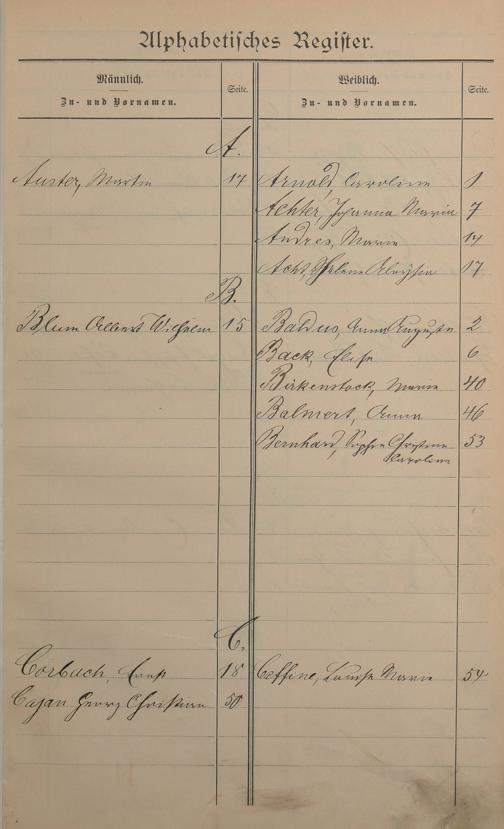 Alphabetisches Register.
Männlich. Seite. Weiblich. Seite.
Zu- und Vornamen. Zu- und Vornamen.
A.
Auster, Martin 17 Arnold, Caroline 1
Achter, Johanna Maria 7
Andres, Maria 14
Acht, Helene Aloysia 17
B.
Blum Albert Wilhelm 15 Baldus, Anna Auguste 2
Back, Elise 6
Birkenstock, Maria 40
Balmert, Anna 46
Bernhard, Sophie Christine 53
Caroline
C.
Corbach, Ernst 18 Caffine, Louise Marie 54
Cajan Georg Christian 50